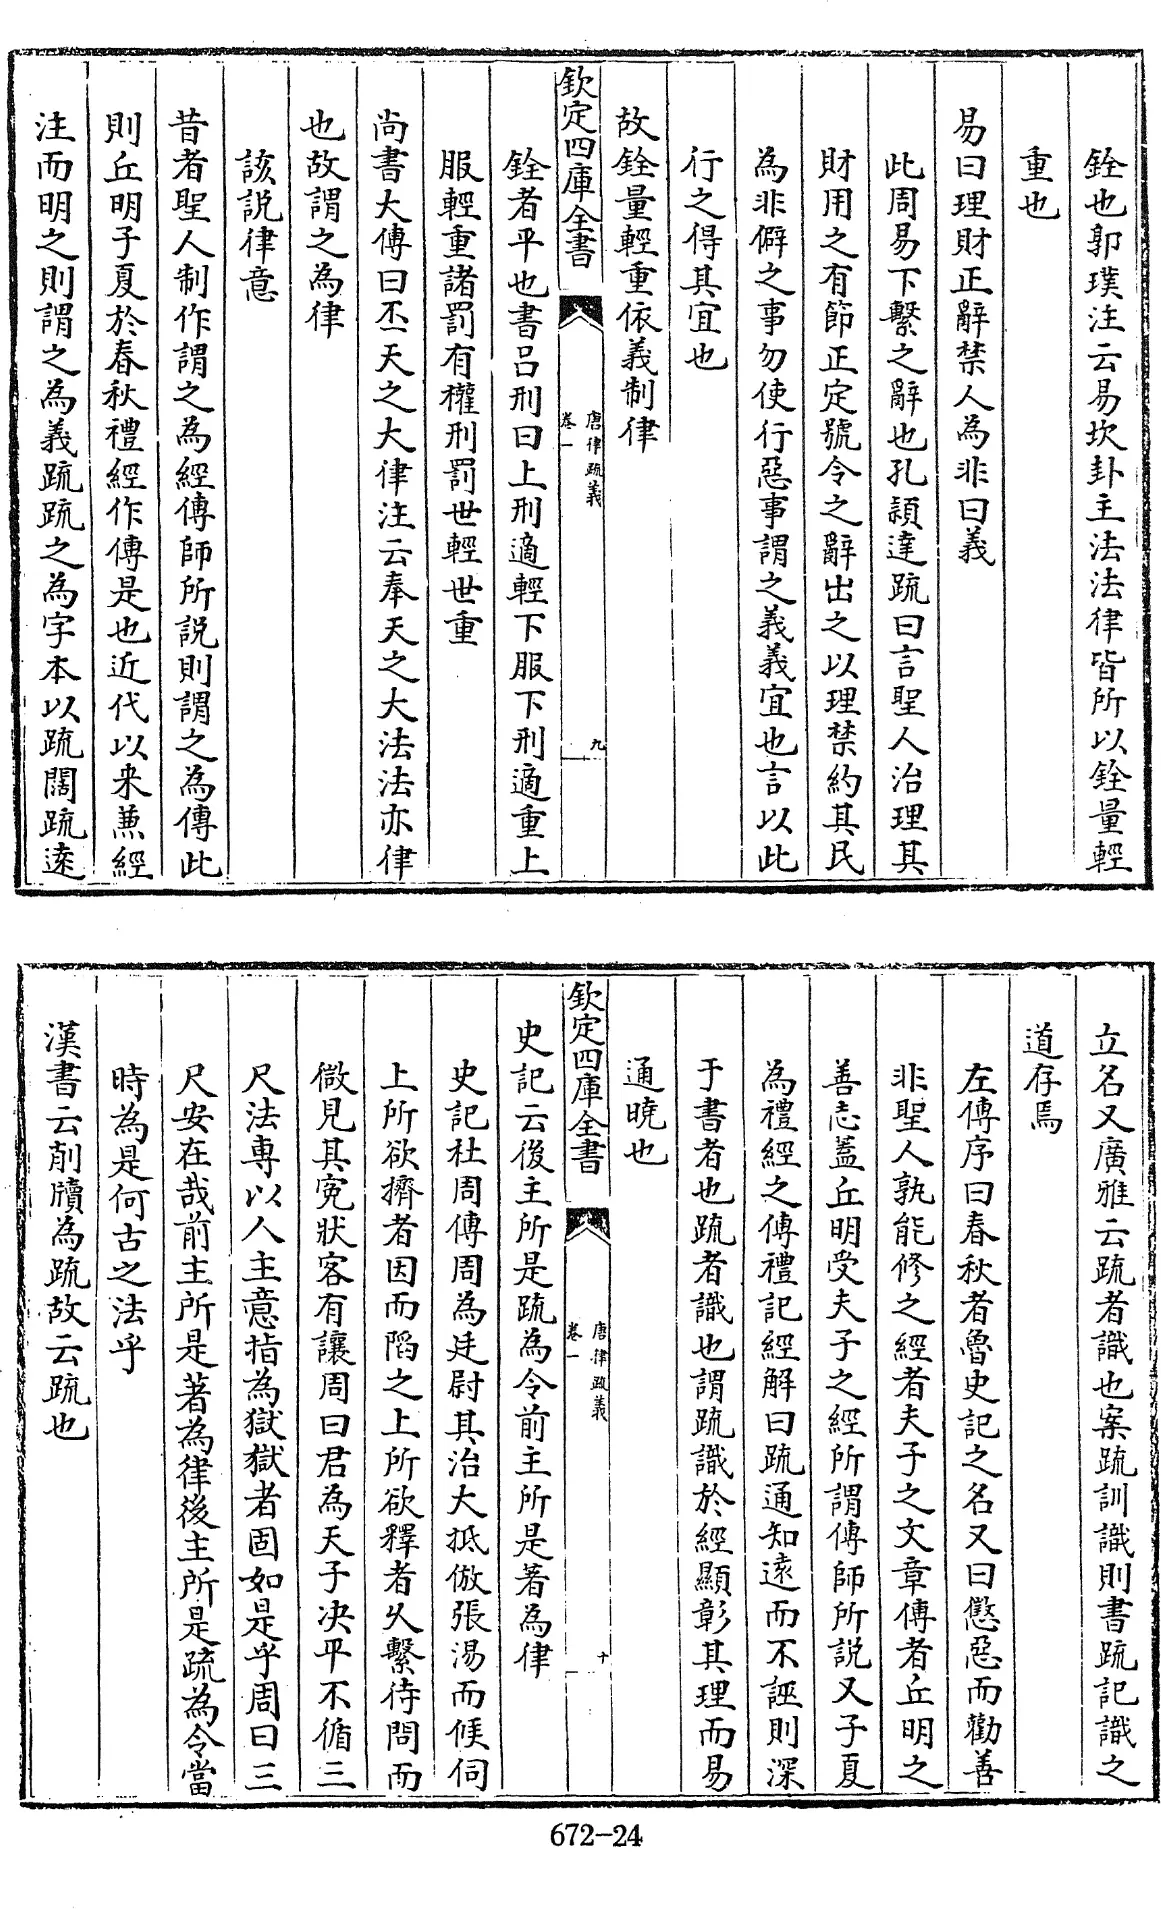 銓也郭璞注云易坎卦主法法律皆所以銓量輕
重也
易曰理財正辭禁人為非曰義
此周易下繫之辭也孔頴達疏曰言聖人治理其
財用之有節正定號令之辭出之以理禁約其民
為非僻之事勿使行惡事謂之義義宜也言以此
行之得其宜也
故銓量輕重依義制律
欽定四庫全書
唐律疏義
卷一
九
銓者平也書呂刑曰上刑適輕下服下刑適重上
服輕重諸罰有權刑罰世輕世重
尚書大傳曰丕天之大律注云奉天之大法法亦律
也故謂之為律
該説律意
昔者聖人制作謂之為經傳師所説則謂之為傳此
則丘明子夏於春秋禮經作傳是也近代以来蕙經
注而明之則謂之為義疏疏之為字本以疏闊疏逺
立名又廣雅云疏者識也案疏訓識則書疏記識之
道存焉
左傳序曰春秋者魯史記之名又曰懲惡而勸善
非聖人孰能修之經者夫子之文章傳者丘明之
善志蓋丘明受夫子之經所謂傳師所説又子夏
為禮經之傳禮記經解曰疏通知逺而不誣則深
于書者也疏者識也謂疏識於經顯彰其理而易
通曉也
欽定四庫全書
唐律疏義
卷一
十
史記云後主所是疏為令前主所是著為律
史記杜周傳周為廷尉其治大抵倣張湯而候伺
上所欲擠者因而陷之上所欲釋者乆繫待問而
微見其寃狀客有讓周曰君為天子决平不循三
尺法専以人主意指為獄獄者固如是乎周曰三
尺安在哉前主所是著為律後主所是疏為令當
時為是何古之法乎
漢書云削牘為疏故云疏也
672-24